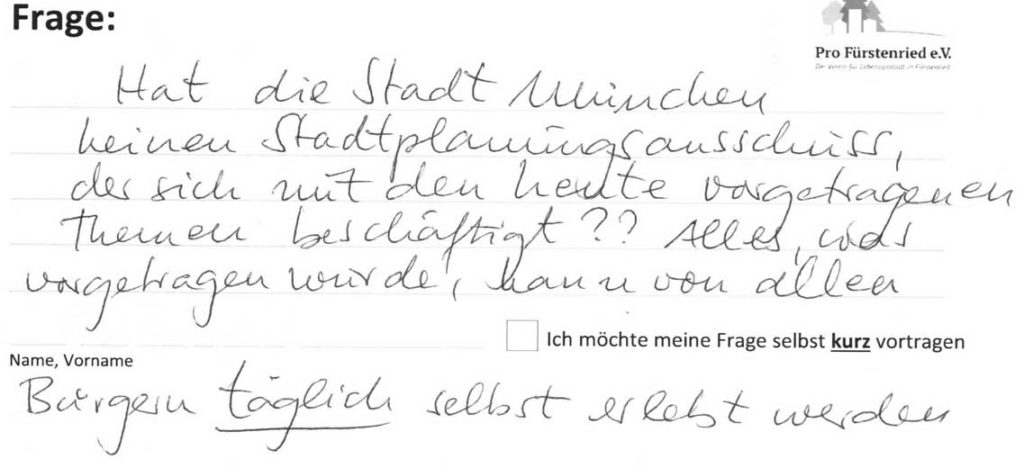 Frage:
Pro Fürstenried e.V.
Hat die Stadt München
keinen Stadtplanungsausschuss,
der sich mit den heute vorgetragenen
Themen beschäftigt?? Alles, was
vorgetragen wurde, kann von allen
Ich möchte meine Frage selbst kurz vortragen
Name, Vorname
Bürgern täglich selbst erlebt werden